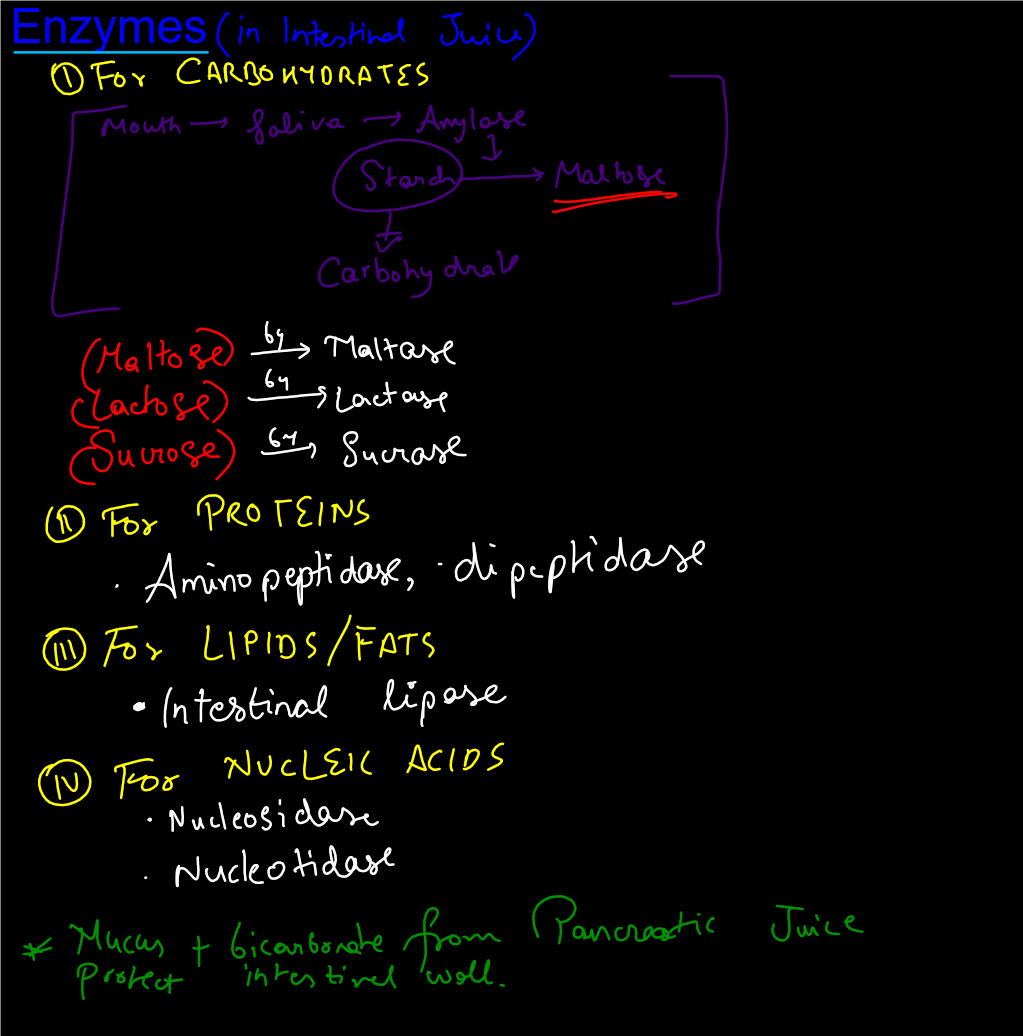 Enzymes (in Intestinal Juice)
I For CARBOHYDRATES
Mouth → Saliva → Amylase
Starch → Maltose
Carbohydrate
(Maltose) by → Maltase
(Lactose) by → Lactase
(Sucrose) by → Sucrase
II For PROTEINS
· Aminopeptidase, · dipeptidase
III For LIPIDS/FATS
• Intestinal lipase
IV For NUCLEIC ACIDS
· Nucleosidase
· Nucleotidase
* Mucus + bicarbonate from Pancreatic Juice
protect intestinal wall.